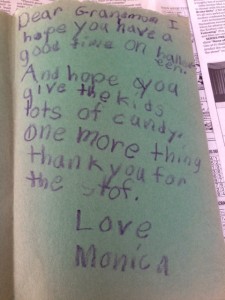 Dear Grandmom I
hope you have a
good time on hallow
een.
And hope you
give the kids
lots of candy.
One more thing
thank you for
the stof.
Love
Monica